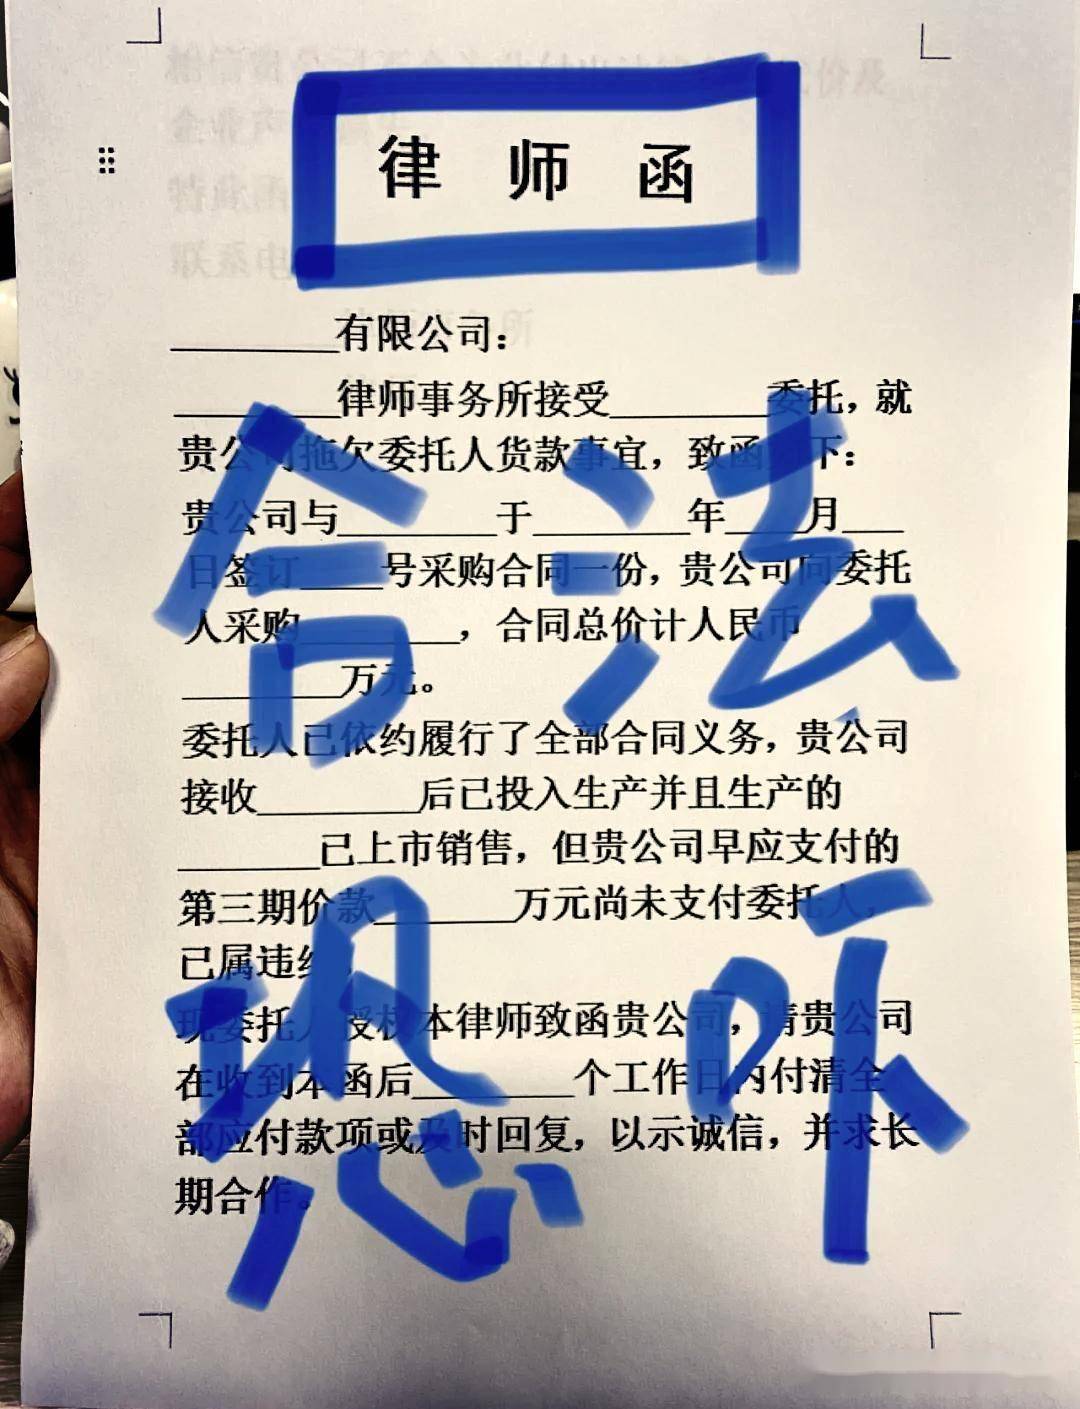 律师函
________有限公司：
________律师事务所接受________委托，就
贵公司拖欠委托人货款事宜，致函如下：
贵公司与________于________年____月___
日签订____号采购合同一份，贵公司向委托
人采购________，合同总价计人民币
________万元。
委托人已依约履行了全部合同义务，贵公司
接收________后已投入生产并且生产的
_______已上市销售，但贵公司早应支付的
第三期价款_______万元尚未支付委托人，
已属违约。
现委托人授权本律师致函贵公司，请贵公司
在收到本函后________个工作日内付清全
部应付款项或及时回复，以示诚信，并求长
期合作。
合法
恐吓